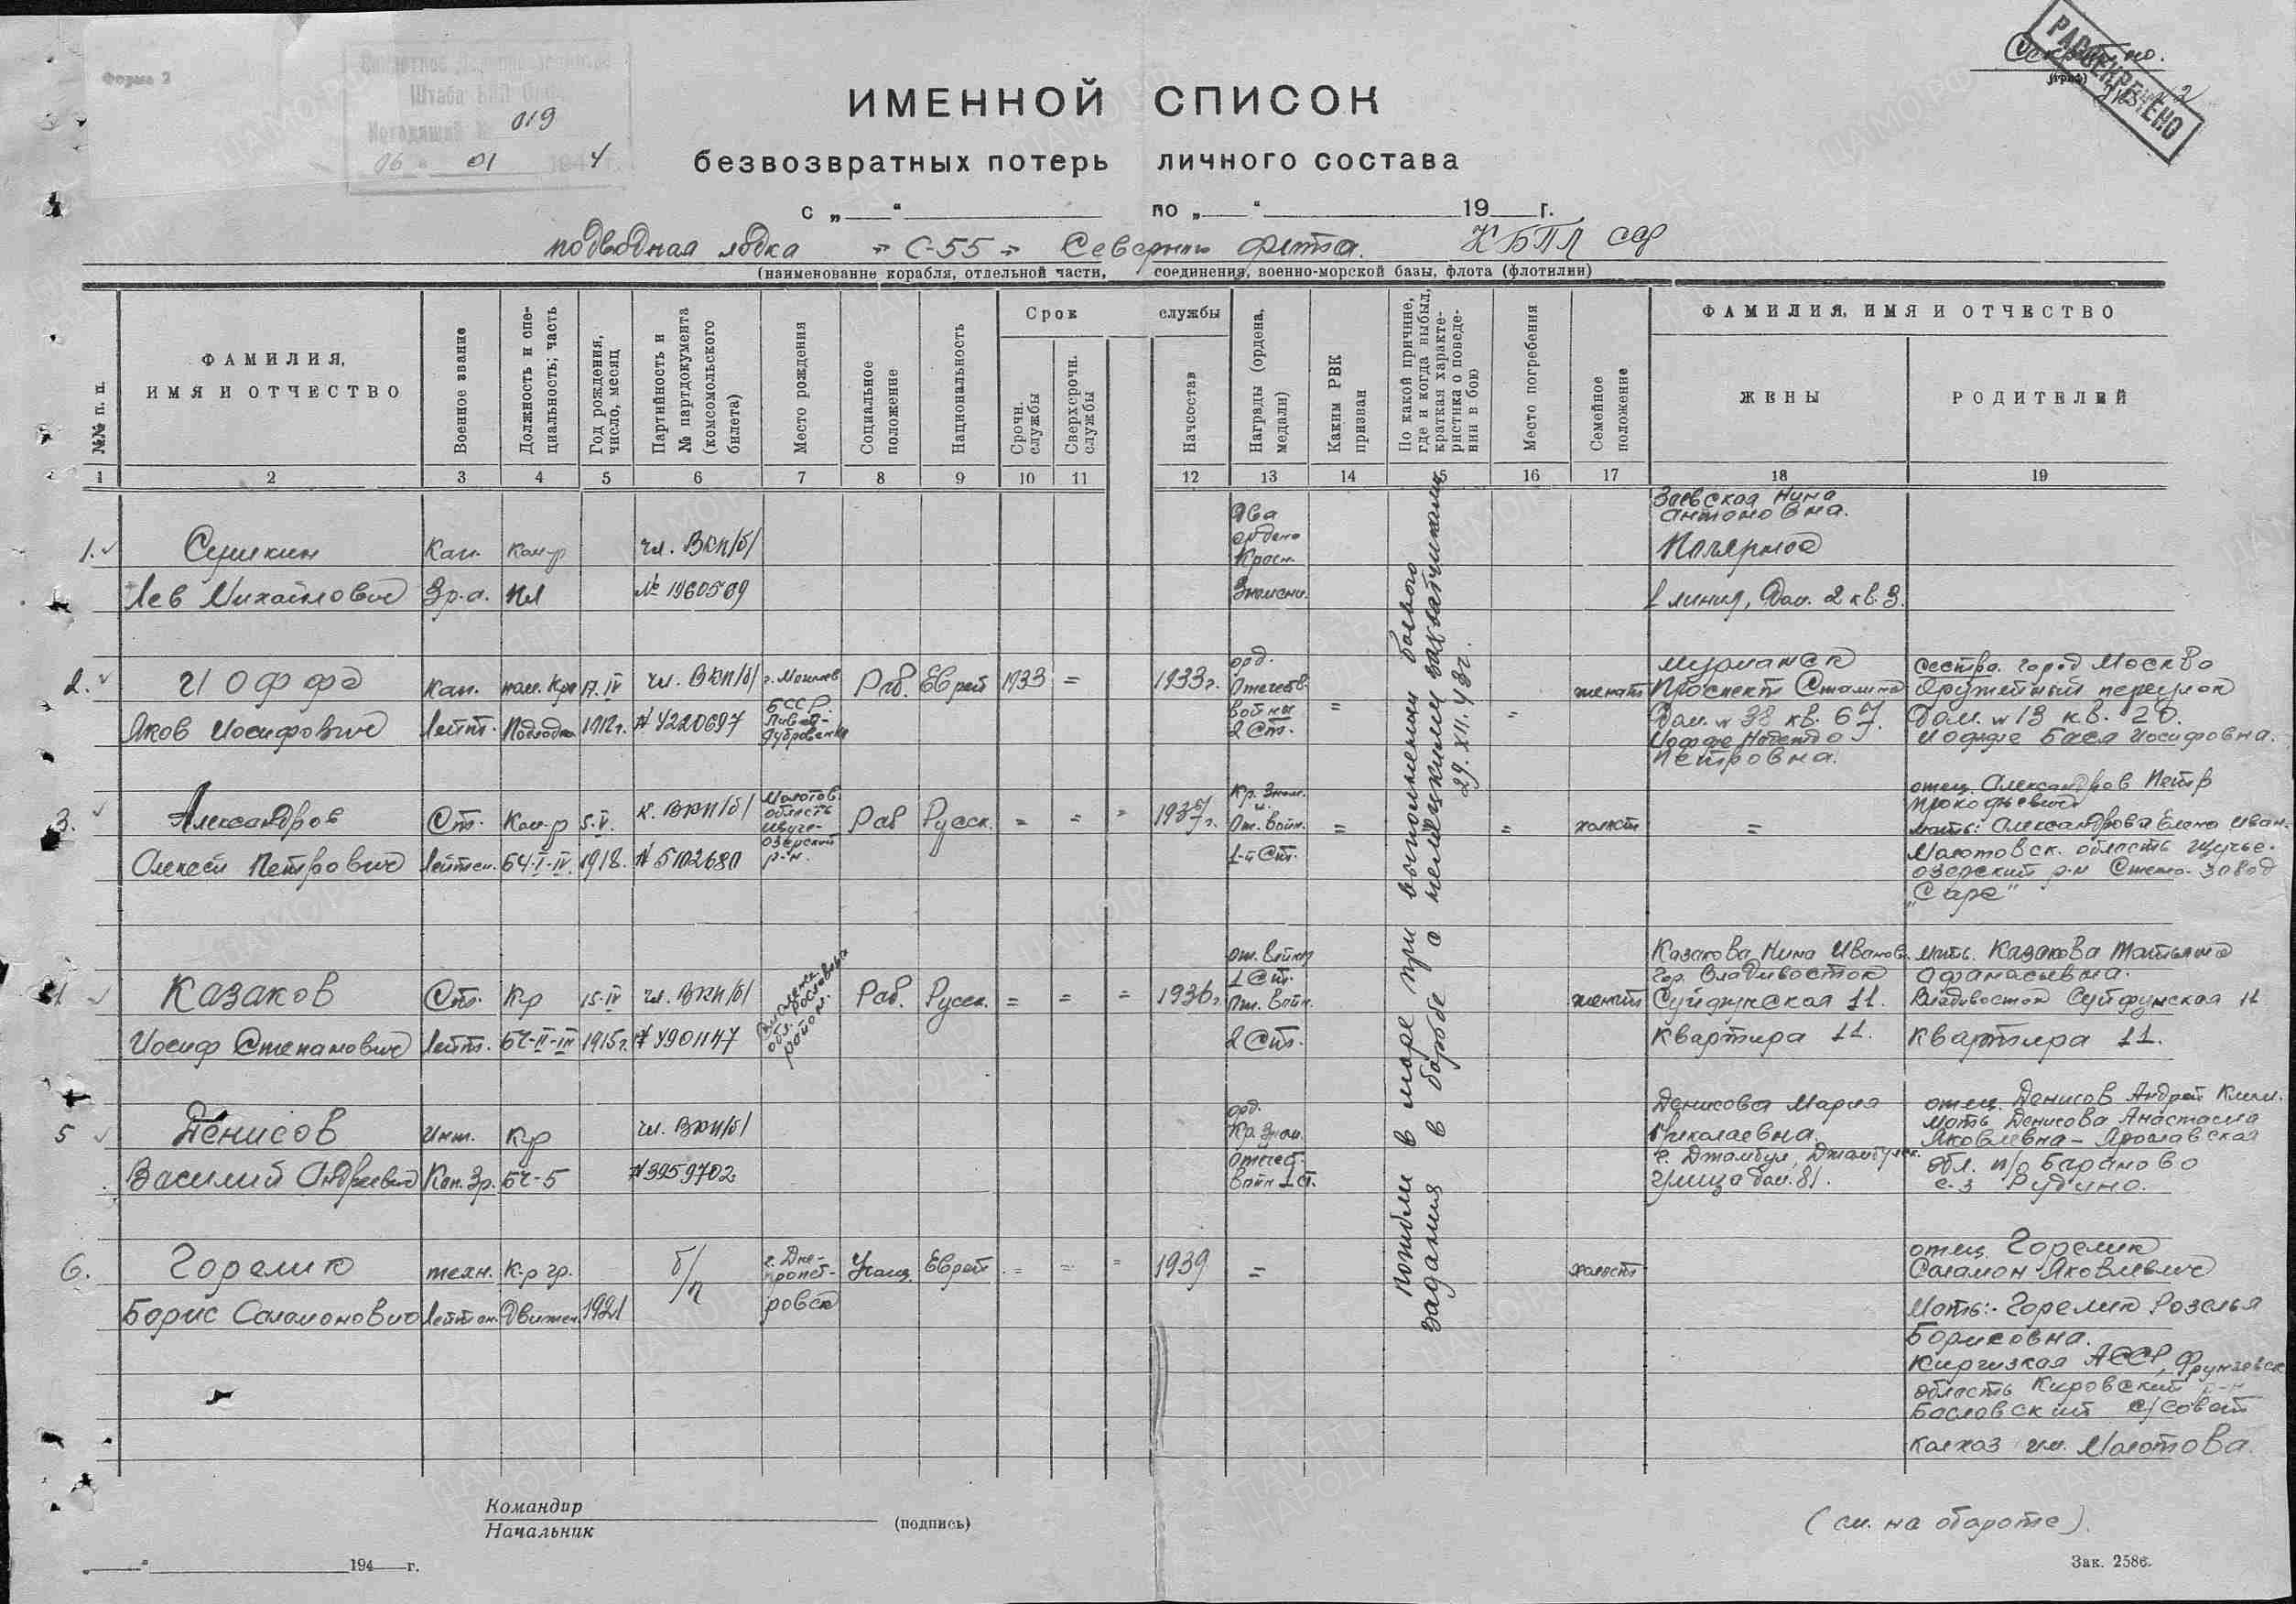 Форма 2
Штаба БПЛ
019
06 " 01 1944 г.
Секретно.
(гриф)
РАССЕКРЕЧЕНО
ИМЕННОЙ СПИСОК
безвозвратных потерь личного состава
с „ “ по „ “ 19 г.
подводная лодка "С-55" Северный флота. КБПЛ СФ
(наименование корабля, отдельной части, соединения, военно-морской базы, флота (флотилии)
№№ п. п.
ФАМИЛИЯ,
ИМЯ И ОТЧЕСТВО
Военное звание
Должность и спе-
циальность; часть
Год рождения,
число, месяц
Партийность и
№ партдокумента
(комсомольского
билета)
Место рождения
Социальное
положение
Национальность
Срок службы
Срочн.
службы
Сверхсрочн.
службы
Начсостав
Награды (ордена,
медали)
Каким РВК
призван
По какой причине,
где и когда выбыл,
краткая характе-
ристика о поведе-
нии в бою
Место погребения
Семейное
положение
ФАМИЛИЯ, ИМЯ И ОТЧЕСТВО
ЖЕНЫ
РОДИТЕЛЕЙ
1 2 3 4 5 6 7 8 9 10 11 12 13 14 15 16 17 18 19
1. Сушкин
Лев Михайлович
Кап.
3 р-а.
Ком-р
ПЛ
чл. ВКП/б/
№ 1960509
Два
ордена
Красн.
Знамени.
Заевская Нина
Антоновна.
Полярное
1 линия, Дом. 2 кв. 3.
2. Иоффе
Яков Иосифович
Кап.
Лейт.
пом. К-ра
Подлодки
17. IV
1912 г.
чл. ВКП/б/
№ 4220697
г. Могилев
БССР.
Дубровенка
Раб.
Еврей
1933
=
1933 г.
орд.
Отечеств.
войны
2 Ст.
=
=
женат
Мурманск
Проспект Сталина
Дом. № 38 кв. 67.
Иоффе Надежда
Петровна.
сестра. город Москва
Оружейный переулок
Дом. № 13 кв. 20.
Иоффе Бася Иосифовна.
3. Александров
Алексей Петрович
Ст.
Лейтен.
Ком-р
БЧ-I-IV.
5. V.
1918.
к. ВКП/б/
№ 5102680
Молотов.
область
Щуче-
озерский
р-н.
Раб
Русск.
=
=
=
1937 г.
Кр. Знам.
и
От. Войн.
1-й Ст.
=
=
холост
=
отец. Александров Петр
Прокофьевич
мать: Александрова Елена Иван.
Молотовск. область Щучье-
озерский р-н Стекло-завод
„Сарс"
4 Казаков
Иосиф Степанович
Ст.
Лейт.
К-р
БЧ-II-III
15-IV
1915 г.
чл. ВКП/б/
№ 4901147
Смоленск.
обл. Рославльск
район.
Раб.
Русск.
=
=
=
1936 г.
От. Войны
1 Ст.
От. Войн.
2 Ст.
женат
Казакова Нина Иванов.
гор. Владивосток
Суйфунская 11.
Квартира 11.
мать. Казакова Татьяна
Афанасьевна.
Владивосток Суйфунская 11
Квартира 11.
5 Денисов
Василий Андреевич
Инж.
Кап. 3р.
К-р
БЧ-5
чл. ВКП/б/
№ 3959702
орд.
Кр. Знам.
Отечест.
Войн 1 ст.
Денисова Мария
Николаевна.
г. Джамбул, Джамбулск.
Улица дом. 81.
отец. Денисов Андрей Клим.
мать Денисова Анастасия
Яковлевна - Ярославская
обл. п/о Бараново
с-з Рудино.
6. Горелик
Борис Саломонович
техн.
Лейтен.
К-р гр.
Движен.
1921
б/п
г. Дне-
пропет-
ровск
Учащ.
Еврей
=
=
=
1939
=
холост
отец. Горелик
Саламон Яковлевич
Мать:- Горелик Розалья
Борисовна.
Киргизкая АССР, Фрунзевск
область Кировский р-н
Басловский с/совет
Колхоз им. Молотова.
Погибли в море при выполнении боевого
задания в борьбе с немецкими захватчиками
29. XII. 43 г.
Командир
Начальник
(подпись)
(см. на обороте).
„ “ 194 г.
Зак. 2586.